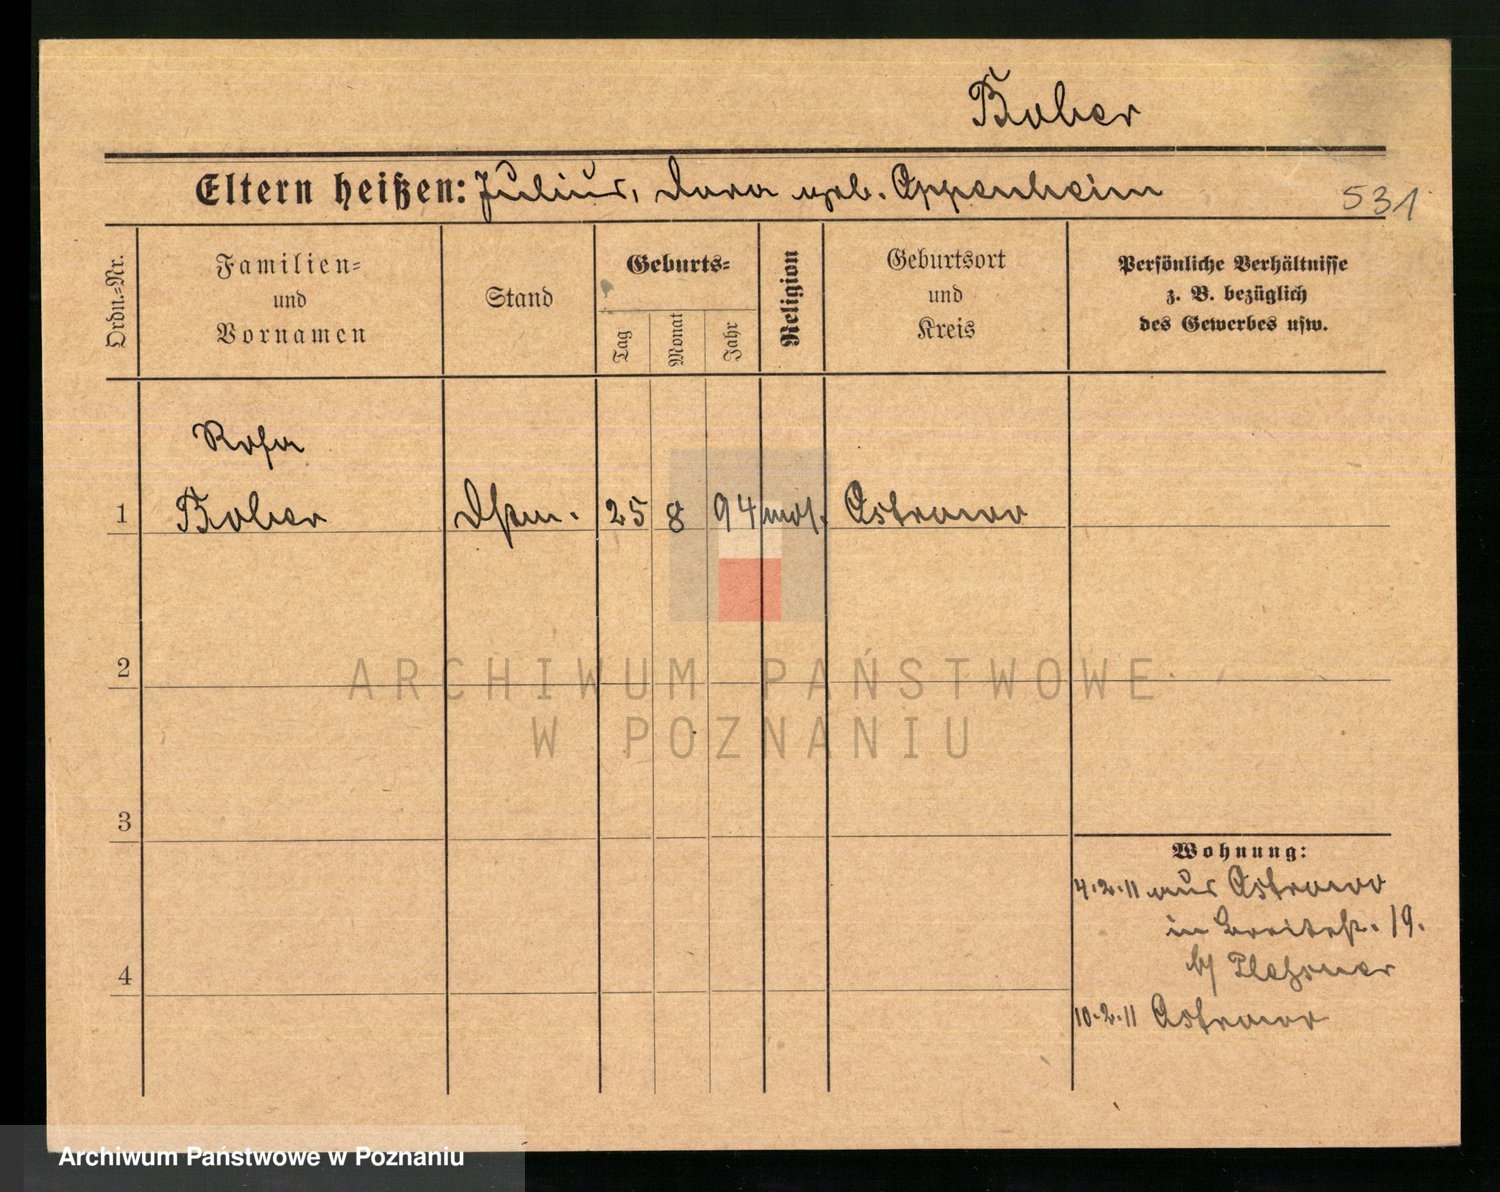 Bober
Eltern heißen: Julius, Dora geb. Oppenheim
531
Ordn.-Nr.
Familien-
und
Vornamen
Stand
Geburts-
Tag
Monat
Jahr
Religion
Geburtsort
und
Kreis
Persönliche Verhältnisse
z. B. bezüglich
des Gewerbes usw.
Rosa
1 Bober 25 8 94 mos. Ostrowo
2
3
4
Wohnung:
4.2.11 aus Ostrowo
in Breitestr. 19.
b/ Plessner
10.2.11 Ostrowo
ARCHIWUM PAŃSTWOWE
W POZNANIU
Archiwum Państwowe w Poznaniu